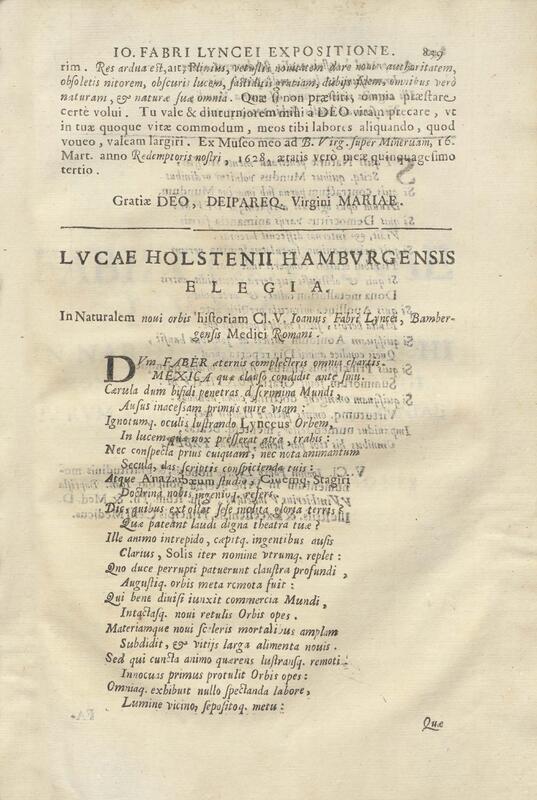 IO. FABRI LYNCEI EXPOSITIONE. 829
rim. Res ardua est, ait, Plinius, vetustis nouitatem dare nouis authoritatem,
obsoletis nitorem, obscuris lucem, fastiditis gratiam, dubijs fidem, omnibus verò
naturam, & naturæ suæ omnia. Quæ si non præstiti, omnia præstare
certè volui. Tu vale & diuturniorem mihi a DEO vitam precare, vt
in tuæ quoque vitæ commodum, meos tibi labores aliquando, quod
voueo, valeam largiri. Ex Museo meo ad B. Virg. super Mineruam, 16.
Mart. anno Redemptoris nostri, 1628, ætatis verò meæ quinquagesimo
tertio.
Gratiæ DEO, DEIPAREQ. Virgini MARIAE.
LVCAE HOLSTENII HAMBVRGENSIS
ELEGIA,
In Naturalem noui orbis historiam Cl. V. Ioannis Fabri Lyncei, Bamber-
gensis Medici Romani.
DVm FABER æternis complecteris omnia chartis.
MEXICA quæ clauso condidit ante sinu.
Cærula dum bifidi penetras discrimina Mundi,
Ausus inacessam primus inire viam:
Ignotumq. oculis lustrando Lynceus Orbem,
In lucem quæ nox presserat atra, trahis:
Nec conspecta prius cuiquam, nec nota animantum
Secula, das scriptis conspicienda tuis:
Atque Anazarbæum studio, Ciuemq. Stagiri
Doctrina nobis ingenioq. refers.
Dic, quibus extollat sese molita gloria terris?
Quæ pateant laudi digna theatra tuæ?
Ille animo intrepido, cæptiq. ingentibus ausis
Clarius, Solis iter nomine vtrumq. replet:
Quo duce perrupti patuerunt claustra profundi,
Augustiq. orbis meta remota fuit:
Qui bene diuisi iunxit commercia Mundi,
Intactasq. noui retulis Orbis opes.
Materiamque noui sceleris mortalibus amplam
Subdidit, & vitijs larga alimenta nouis.
Sed qui cuncta animo quærens lustransq. remoti
Innocuas primus protulit Orbis opes:
Omniaq. exhibuit nullo spectanda labore,
Lumine vicino, sepositoq. metu:
Quæ